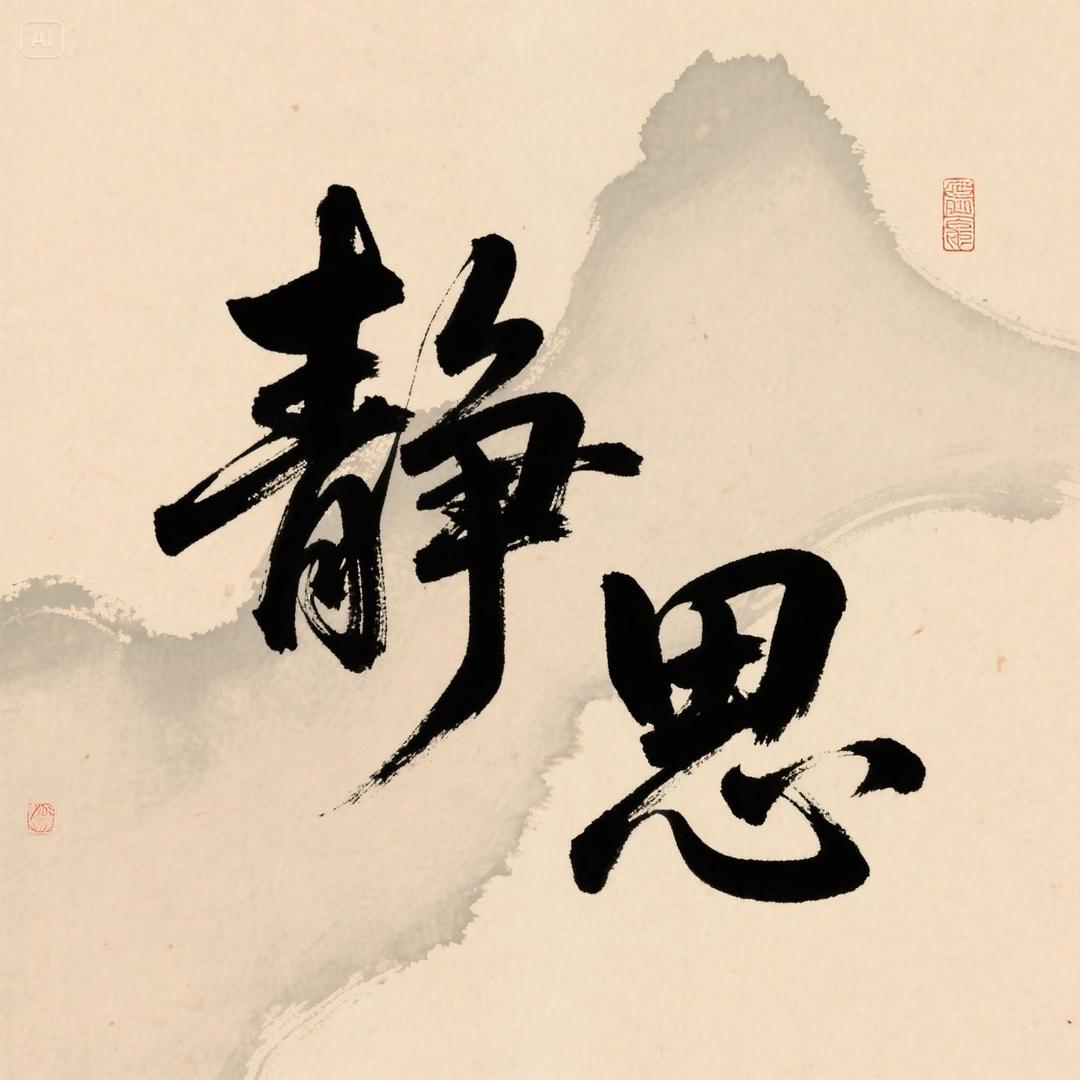 AI
静思